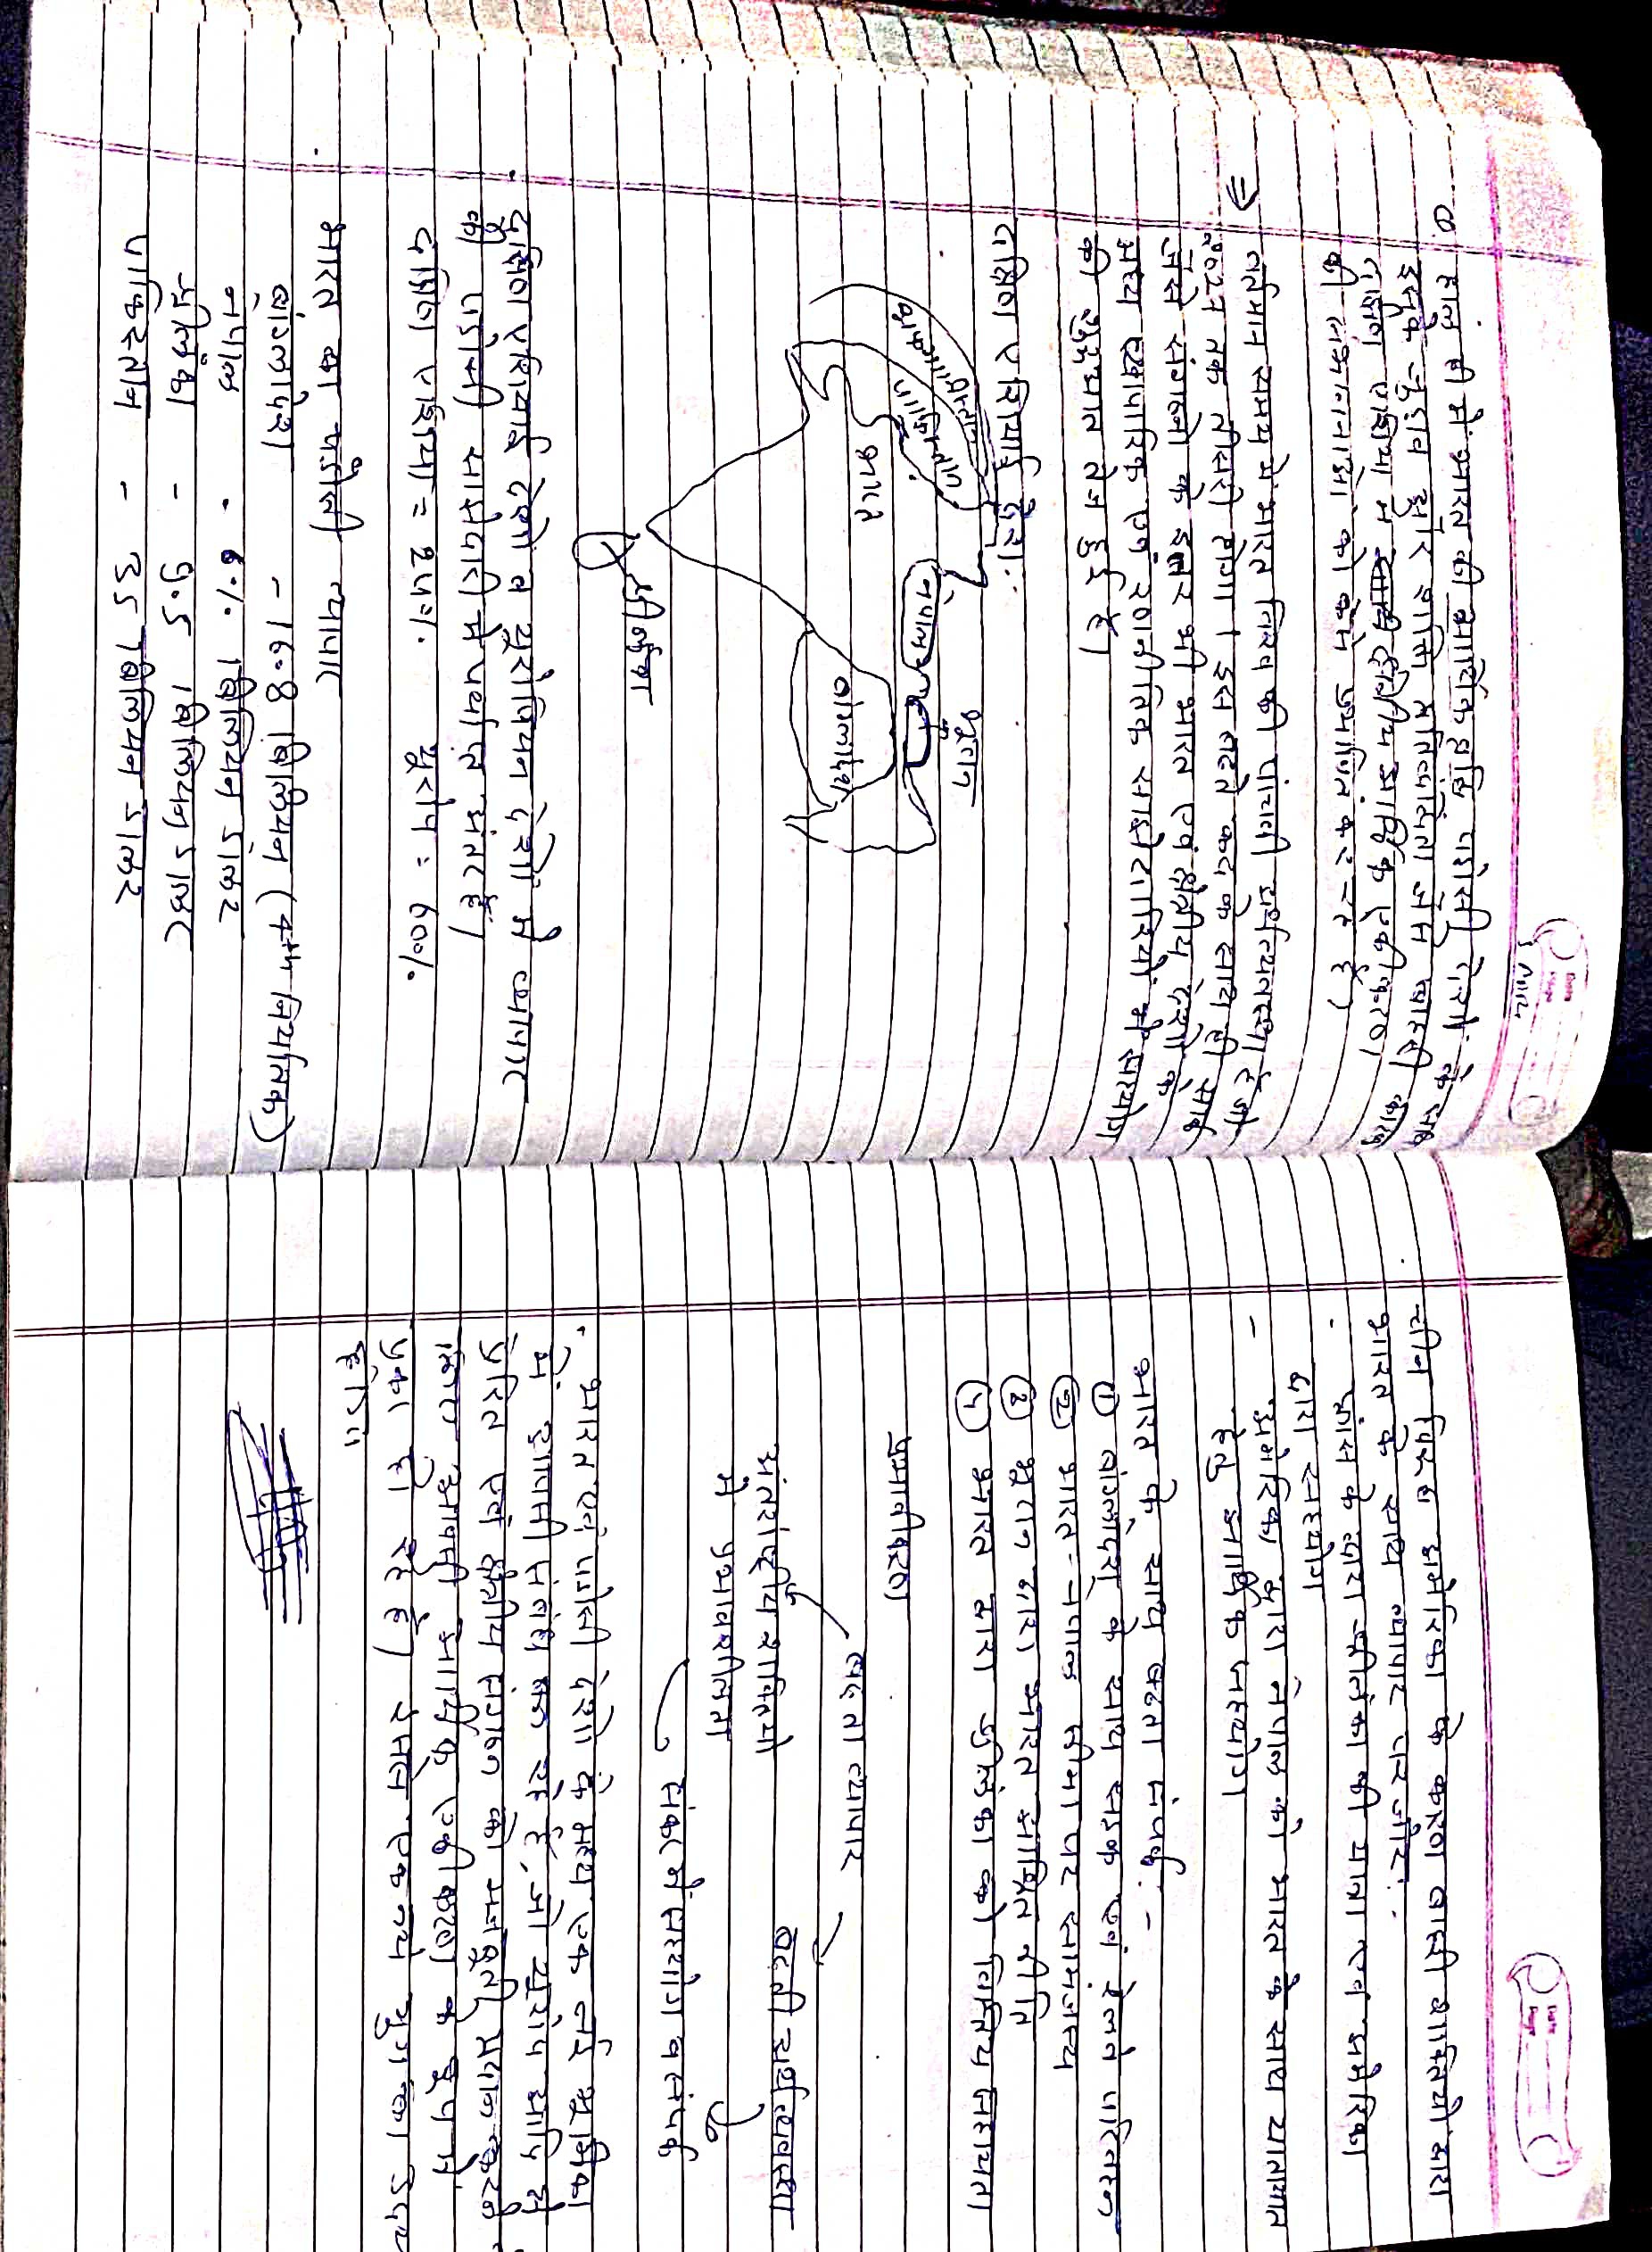 Q. हाल ही में भारत की आर्थिक वृद्धि पडोसी देशों के साथ
इसके जुडाव और शक्ति प्रतिस्पर्धिता जैसे बाहरी कारक
दक्षिण एशिया में क्षेत्रिय आर्थिक एकीकरण
की संभावनाओं को कैसे प्रभावित कर रहे हैं)
⇒ वर्तमान समय मे भारत विश्व की पांचवी अर्थव्यवस्था है जो
२०२७ तक तीसरी होगा । इस बढते कद के साथ ही सार्क
जैसे संगठनो के इतर भी भारत एवं क्षेत्रीय देशो के
मध्य व्यापारिक एवं रणनीतिक साझेदारियों मे सहयोग
की शुरुआत तेज हुई है।
दक्षिण एशियाई देश:
अफगानिस्तान
पाकिस्तान
भारत
नेपाल
भूटान
बांग्लादेश
श्रीलंका
· दक्षिण एशियाई देशो व यूरोपियन देशों मे व्यापार
की पडोसी साझेदारी मे पर्याप्त अंतर है।
दक्षिण एशिया = 24% यूरोप = 60%
· भारत का पडौसी व्यापार
बांग्लादेश - 16.8 बिलियन (4th निर्यातक)
नेपाल - 6% बिलियन डालर
श्रीलंका - 5.5 बिलियन डालर
पाकिस्तान - 35 बिलियन डालर
· चीन विरुद्ध अमेरिका के कारण बाहरी शक्तियो द्वारा
भारत के साथ व्यापार पर जोर:
· फ्रांस के द्वारा श्रीलंका की यात्रा एवं अमेरिका
द्वारा सहयोग
- अमेरिका द्वारा नेपाल को भारत के साथ यातायात
हेतु आर्थिक सहयोग
भारत के साथ बढता संपर्क: -
① बांग्लादेश के साथ सडक एवं रेलवे परिवहन
② भारत - नेपाल सीमा पर सामंजस्य
③ भूटान द्वारा भारत आश्रित नीति
④ भारत द्वारा श्रीलंका को वित्तिय सहायता
प्रभावीकरण
बढता व्यापार
अंतर्राष्ट्रीय शक्तियो
मे प्रभावशीलता
बढती अर्थव्यवस्था
संकट में सहयोग व संपर्क
· भारत एवं पडोसी देशो के मध्य एक नई भूमिका
में आपसी संबंध बन रहे है, जो यूरोप आदि से
प्रेरित एवं क्षेत्रीय संगठन को मजबूती प्रदान करने
हेतु आपसी आर्थिक एकीकरण के रूप में
प्रकट हो रहे है। इससे एक नये युग का उदय
होगा॥